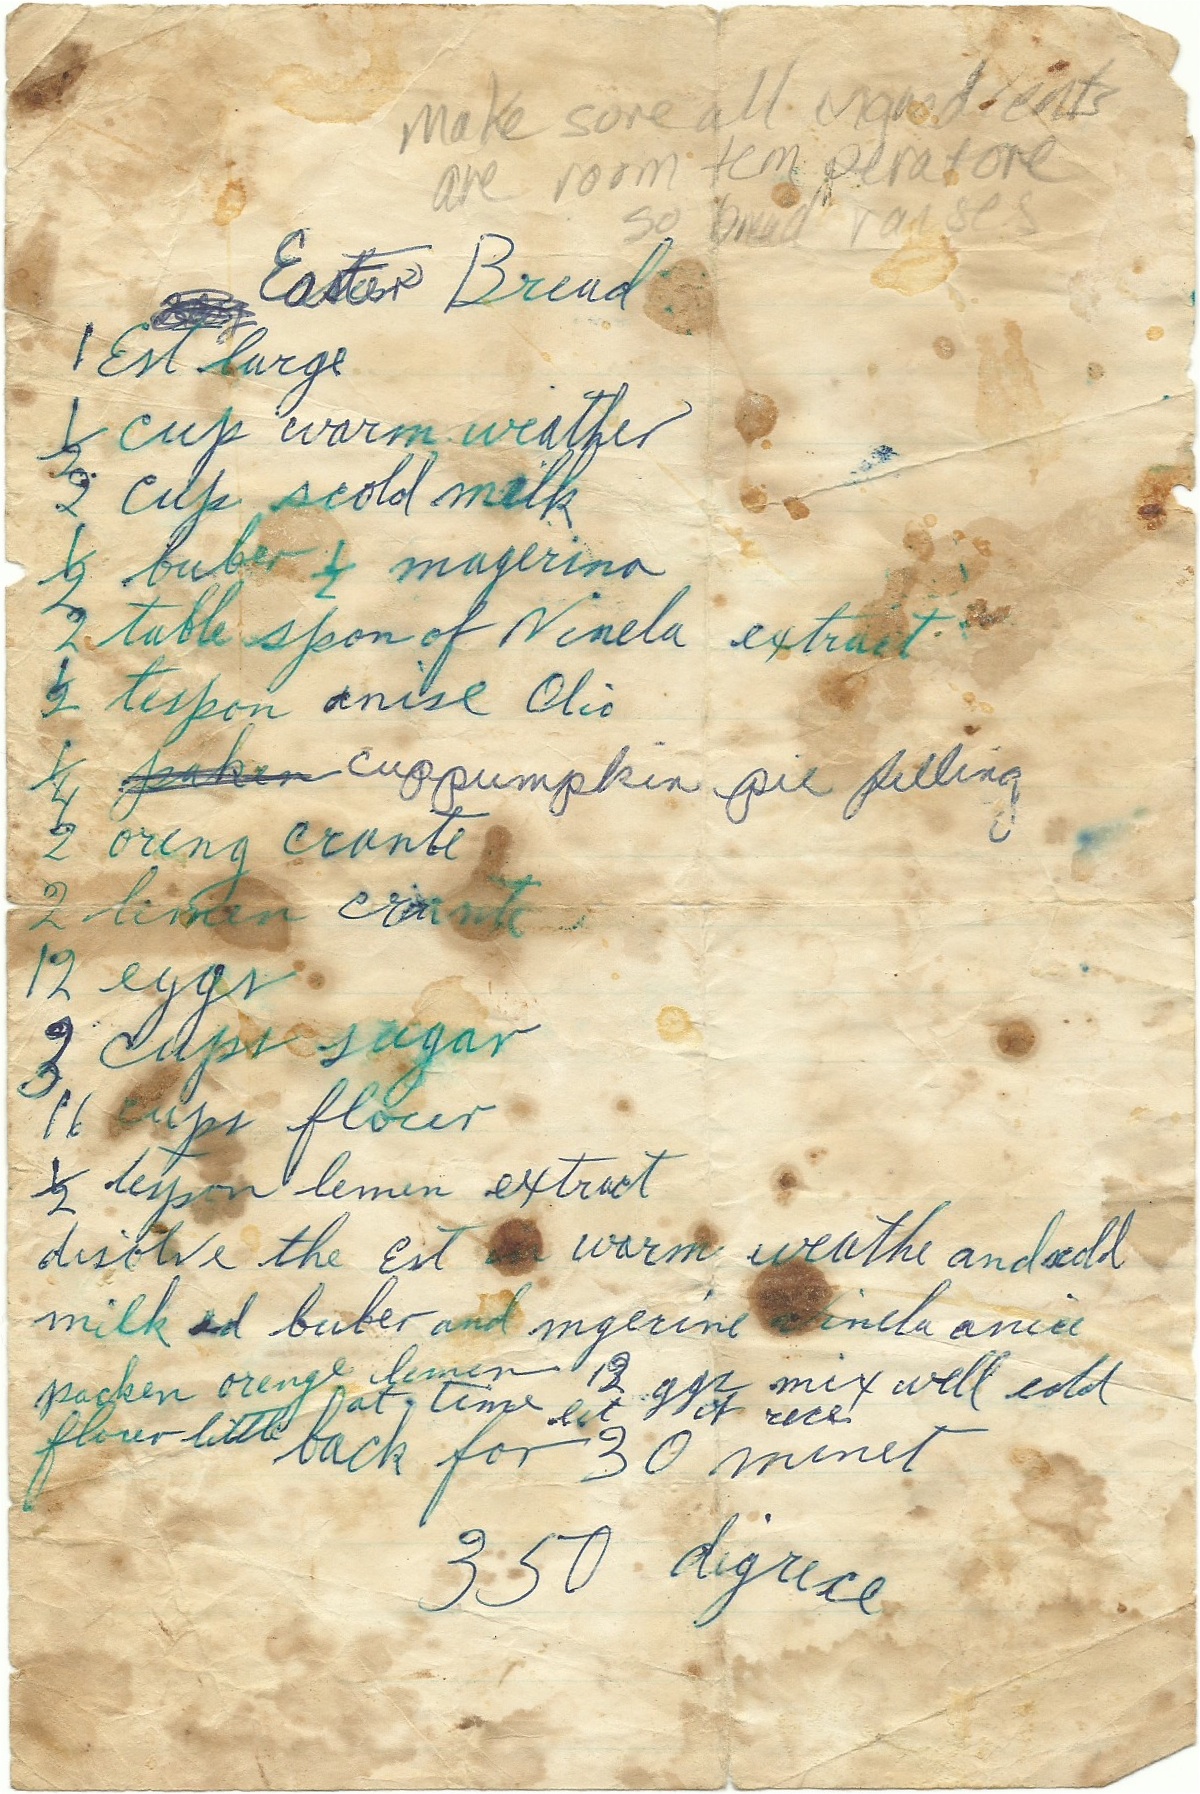 make sore all ingredients
are room temperatore
so bread raises
Easter Bread
1 Est large
1/2 cup warm weather
2 cup scold milk
1/2 buber 1/4 magerina
2 table spon of Vinela extract
1/2 tespon anise Olio
1/4 paken cup pumpkin pie filling
2 oreng crante
2 limen crante
12 eggs
3 cups sugar
11 cups flower
1/2 tespon lemen extract
disolve the Est in warm weathe and add
milk ed buber and mgerine Vinela anice
packen orenge lemen 12 ggs mix well edd
flower little at time let it rece
back for 30 minet
350 digrece